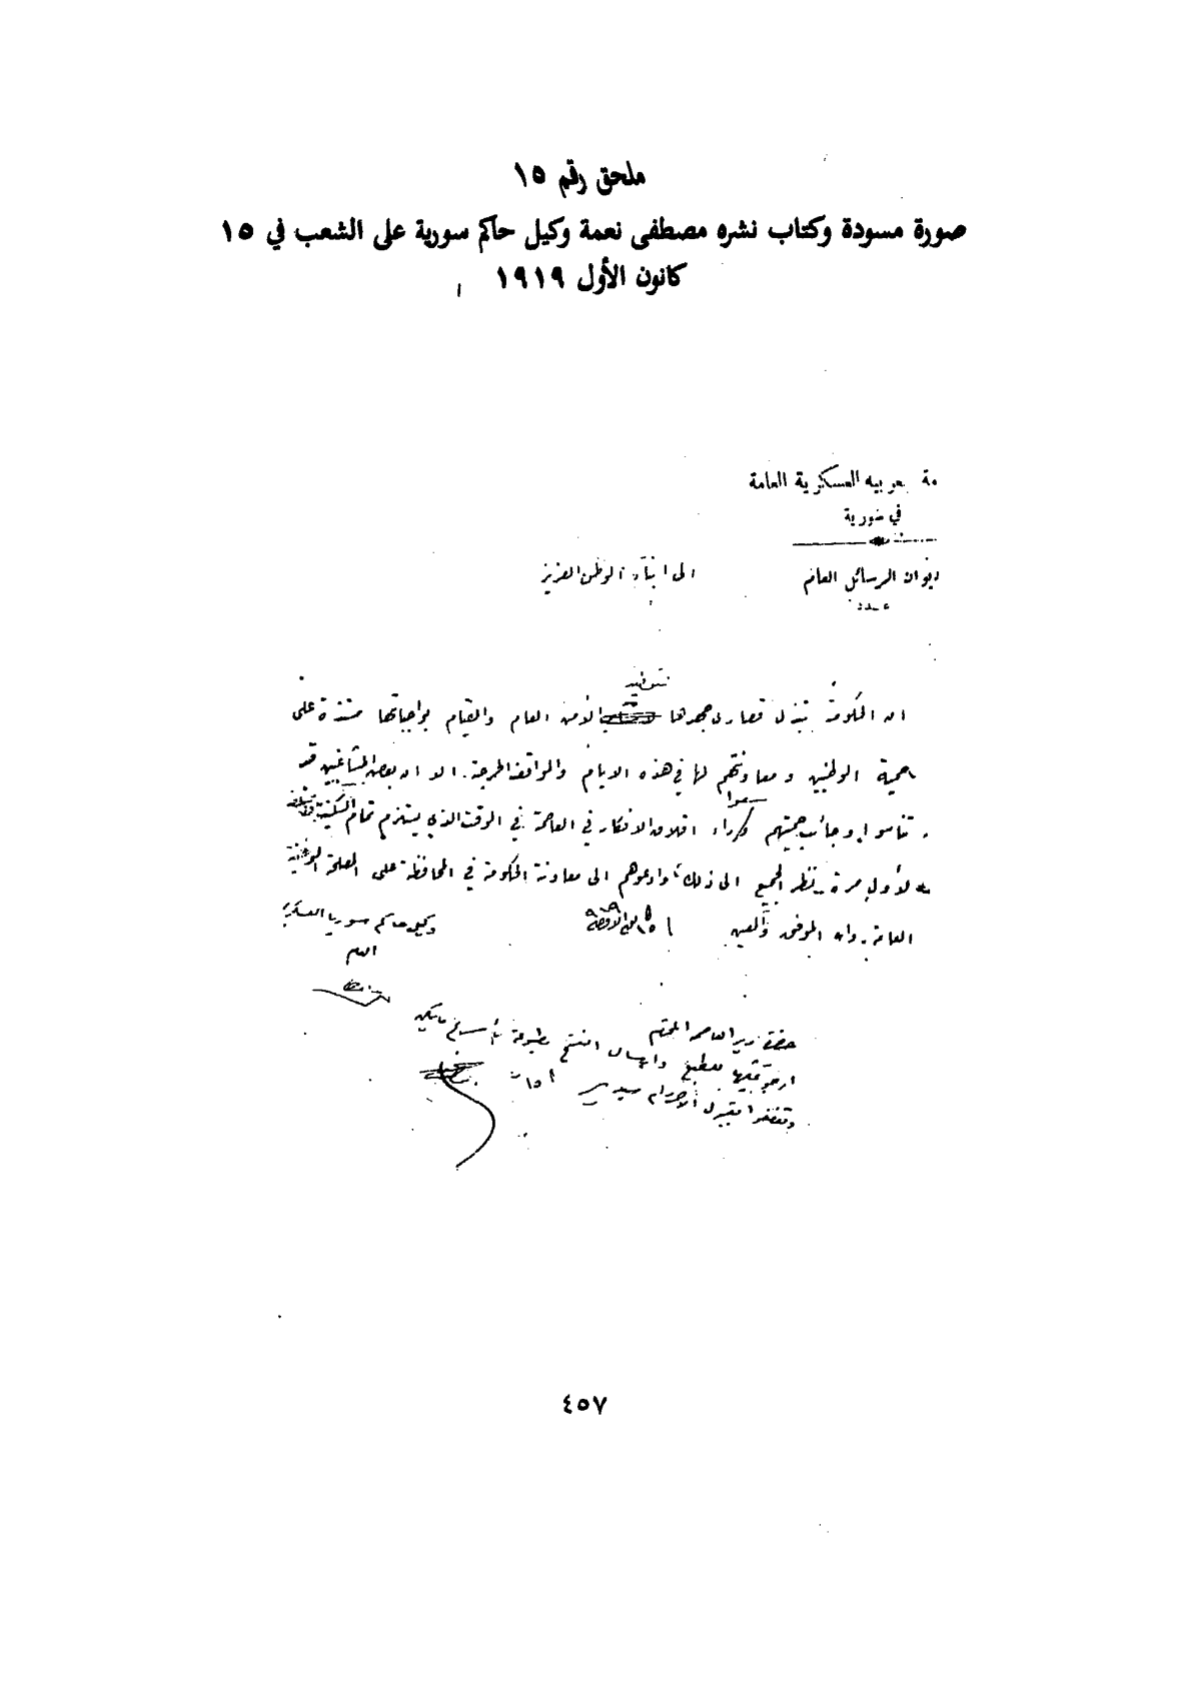 ملحق رقم ١٥
صورة مسودة وكتاب نشره مصطفى نعمة وكيل حاكم سورية على الشعب في ١٥
كانون الأول ١٩١٩
مة عربيه العسكرية العامة
في سورية
ديوان الرسائل العام
عدد
الى ابناء الوطن العزيز
توطيد
ان الحكومة تبذل قصارى جهدها الأمن العام والقيام بواجباتها مستندة على
حمية الوطنيين ومعاونتهم لها في هذه الايام والمواقف الحرجة. الا ان بعض المشاغبين قد
تناسوا واجب حميتهم وراء اقلاق الافكار في العاصمة في الوقت الذي يستلزم تمام السكينة
لأول مرة نظر الجميع الى ذلك وادعوهم الى معاونة الحكومة في المحافظة على المصلحة الوطنية
العامة. والله الموفق والمعين
وكيل حاكم سوريا العسكري
العام
حضرة مدير العاصمة المحترم
للطبع وارسال
وتفضلوا بقبول الاحترام سيدي
٤٥٧